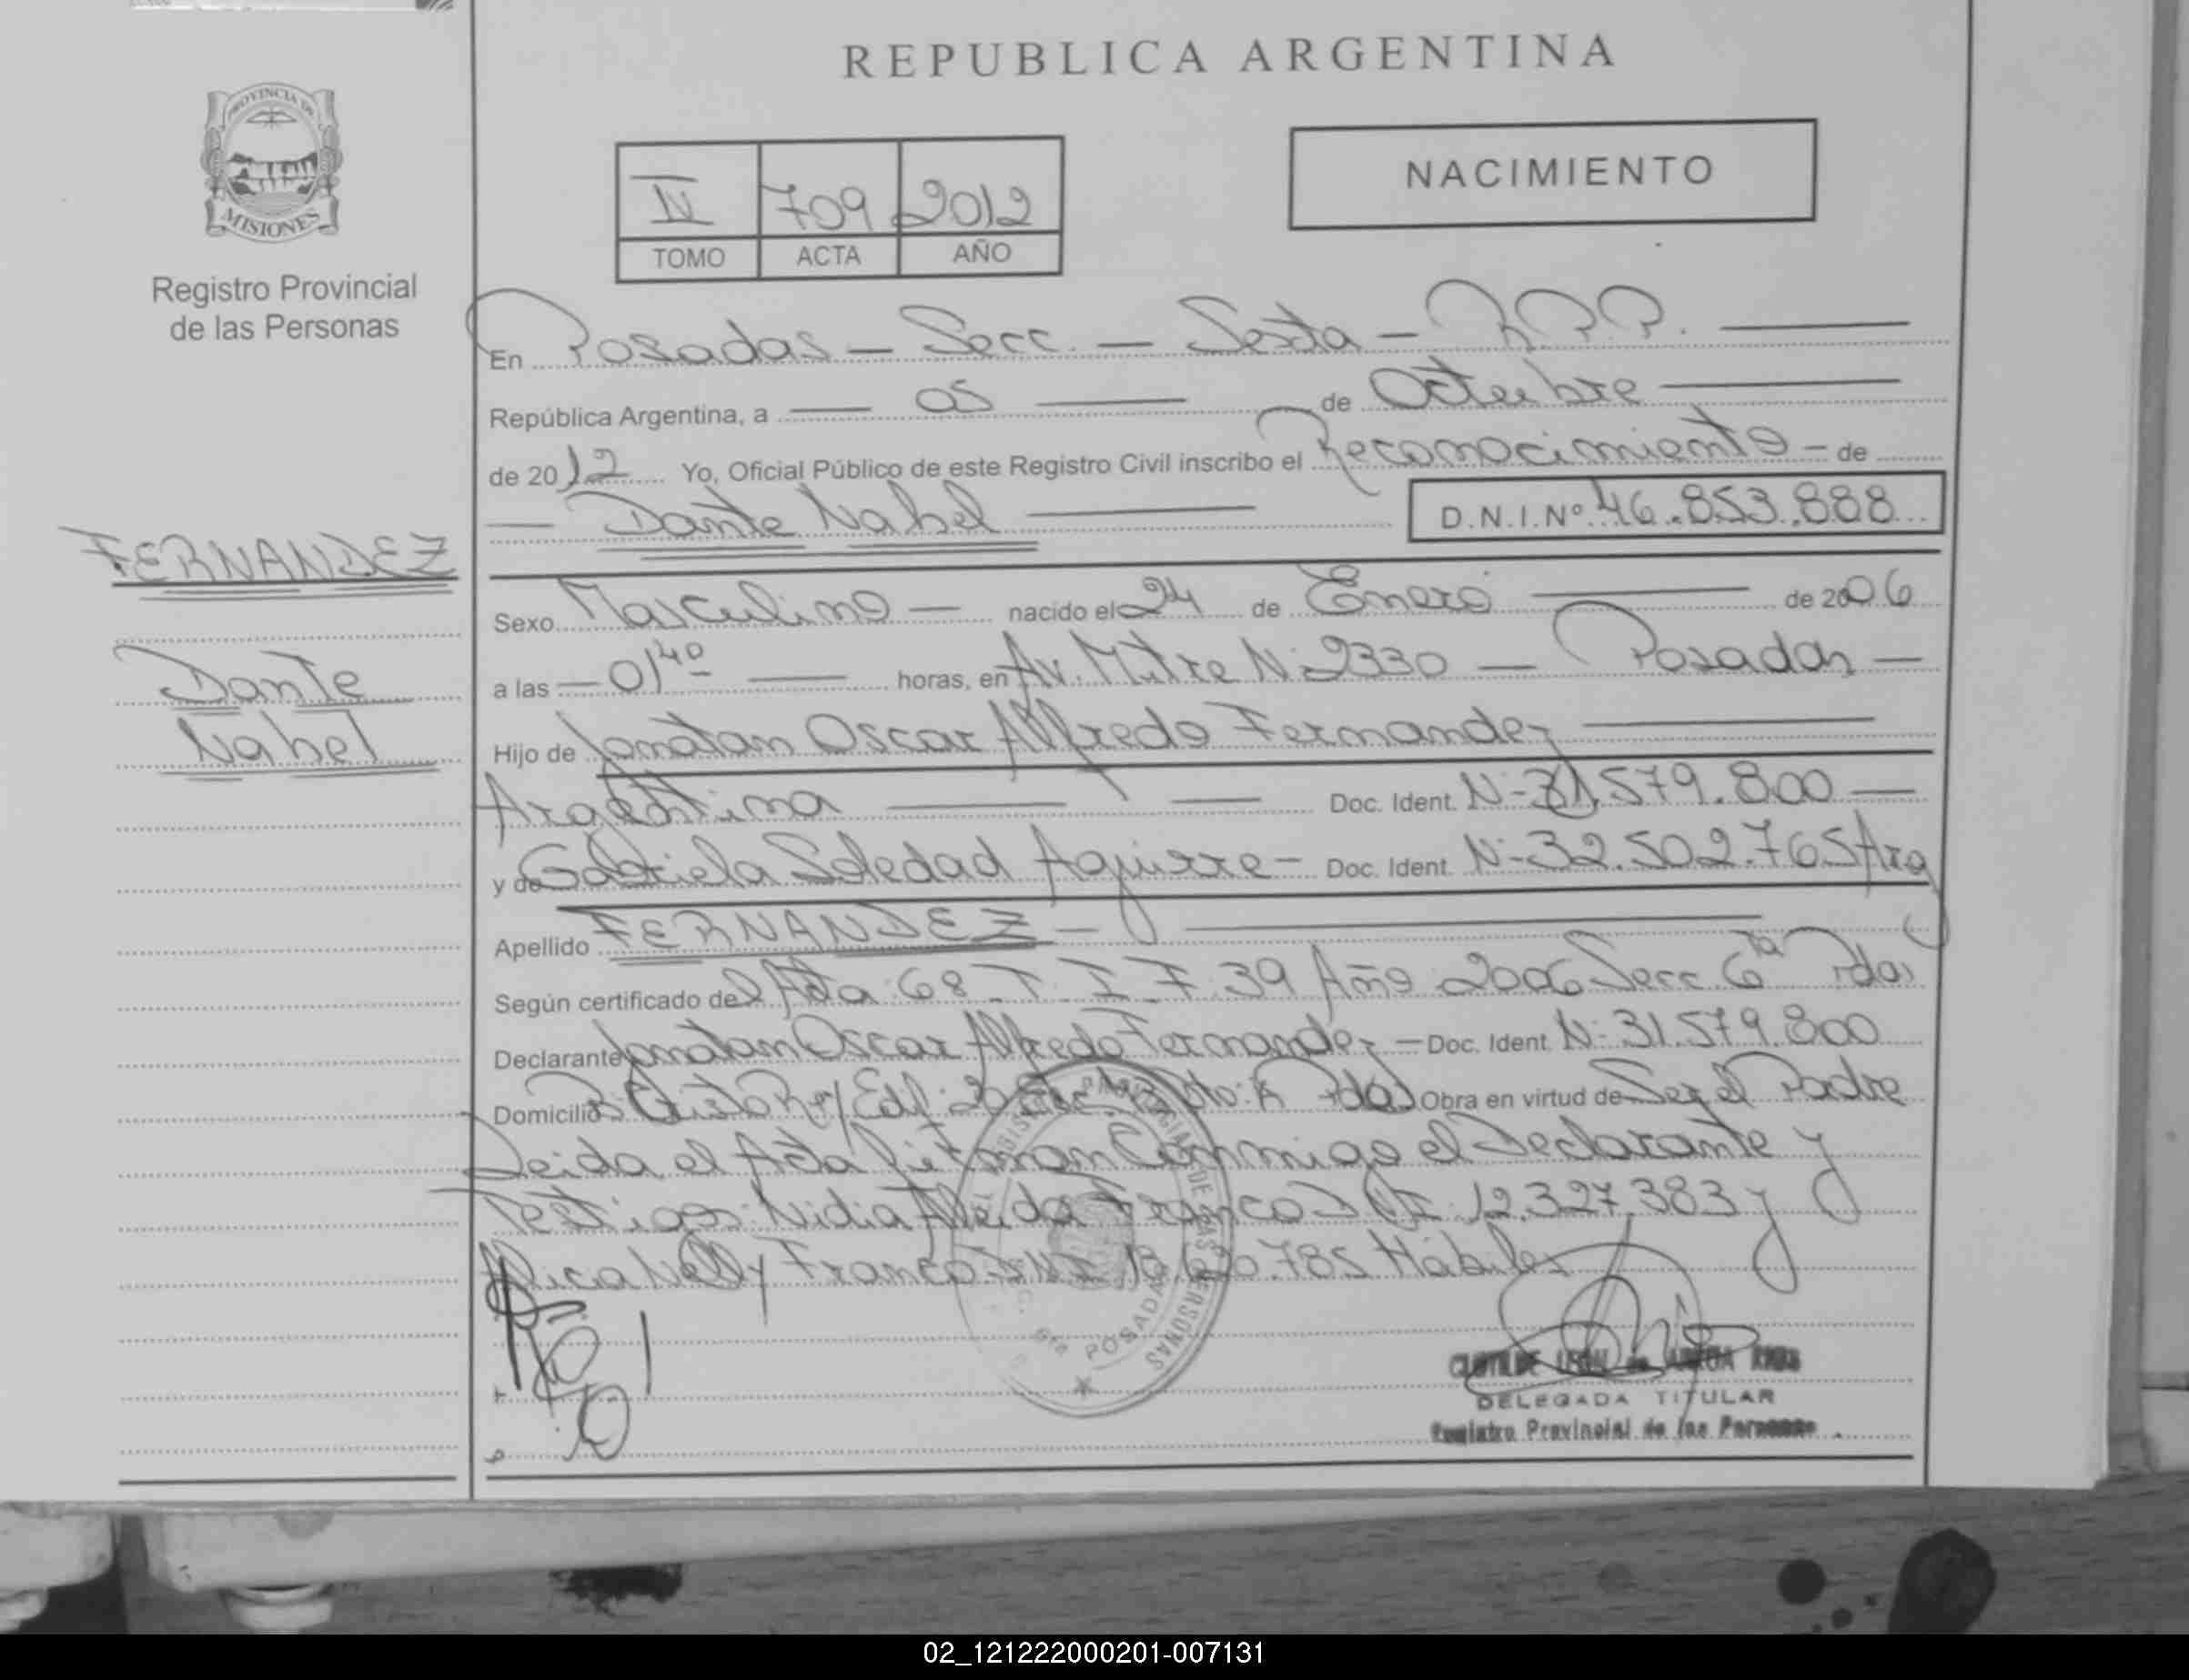 REPUBLICA ARGENTINA
PROVINCIA DE
MISIONES
Registro Provincial
de las Personas
NACIMIENTO
IV 709 2012
TOMO ACTA AÑO
En Posadas — Secc. — Sexta — R.P.P.
República Argentina, a — 05 — de Octubre
de 2012 Yo, Oficial Público de este Registro Civil inscribo el Reconocimiento - de
— Dante Nahel — D.N.I.Nº 46.853.888
FERNANDEZ
Dante
Nahel
Sexo Masculino — nacido el 24 de Enero — de 2006
a las — 01 40 — horas, en Av. Mitre N: 2330 — Posadas —
Hijo de Jonatan Oscar Alfredo Fernandez
Argentina — Doc. Ident. N- 31.579.800 —
y de Gabriela Soledad Aguirre - Doc. Ident. N- 32.502.765 Arg
Apellido FERNANDEZ -
Según certificado del Acta 68 T I F 39 Año 2006 Secc 6ta Pdas
Declarante Jonatan Oscar Alfredo Fernandez — Doc. Ident. N- 31.579.800
Domicilio B: Cristo Rey Edif: Pdas Obra en virtud de Ser el Padre
Leida el Acta firman Conmigo el Declarante y
Testigos: Nidia Franco DNI 12.327.383 y
Nelly Franco DNI 785 Hábiles
POSADAS
DELEGADA TITULAR
Registro Provincial de las Personas
02_121222000201-007131